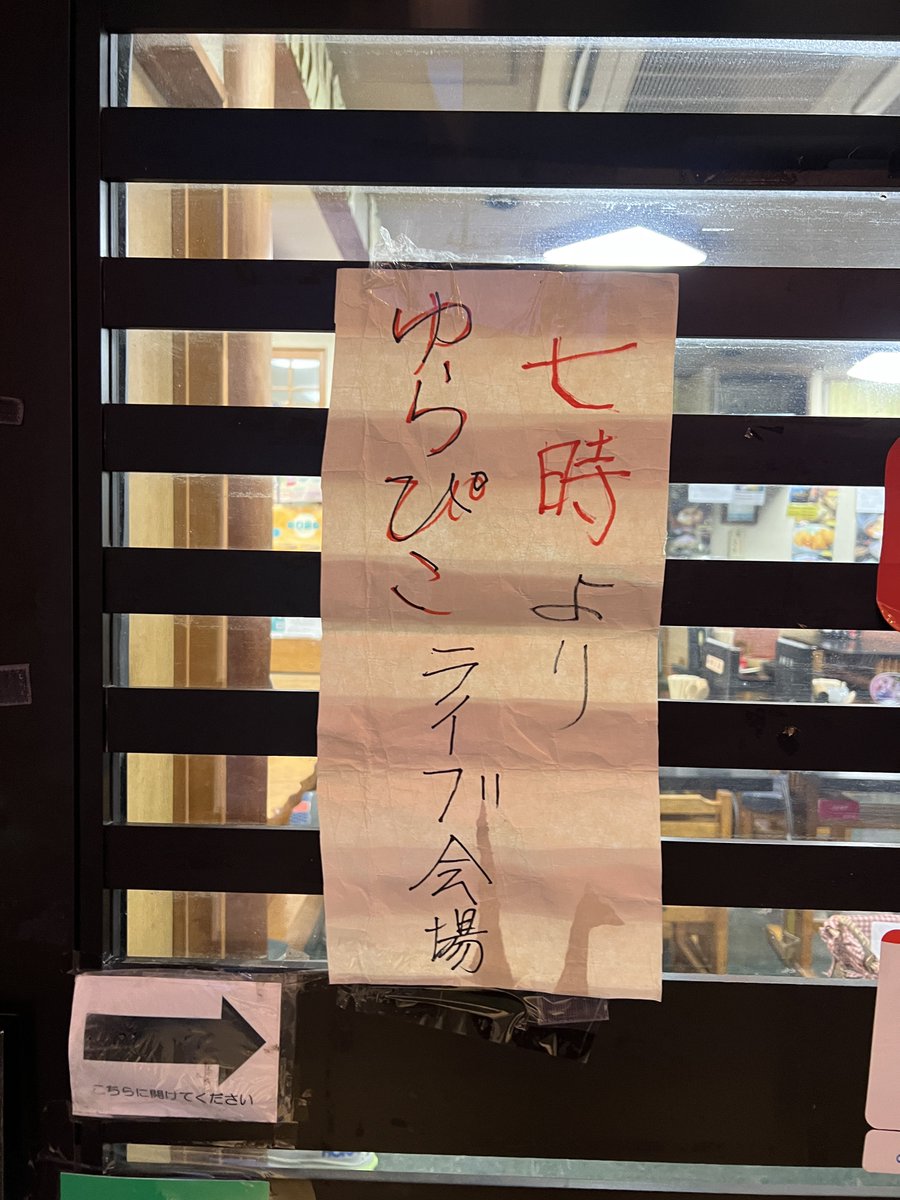 七時より
ゆらぴこライブ会場
こちらに開けてください